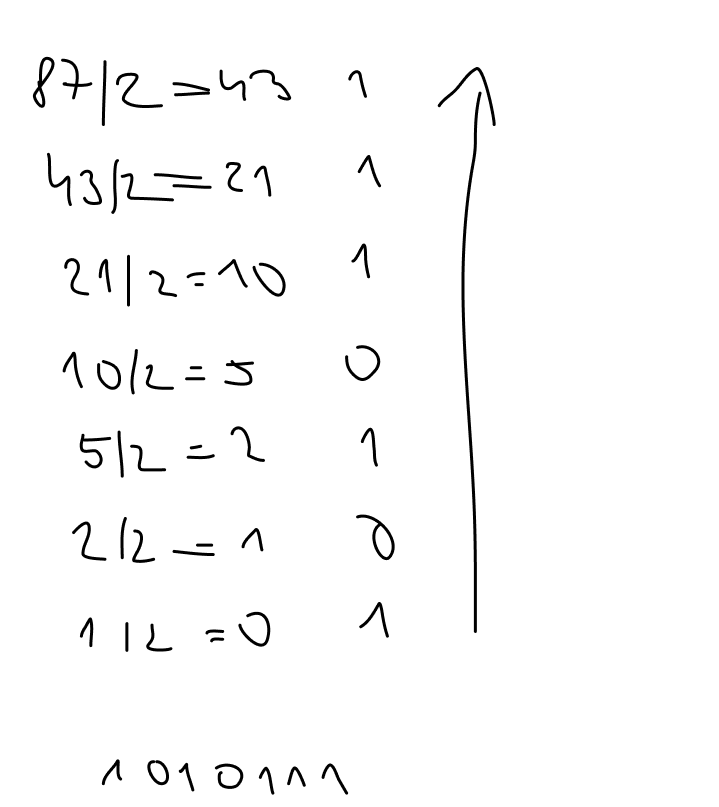 87/2=43 1
43/2=21 1
21/2=10 1
10/2=5 0
5/2=2 1
2/2=1 0
1/2=0 1
1010111